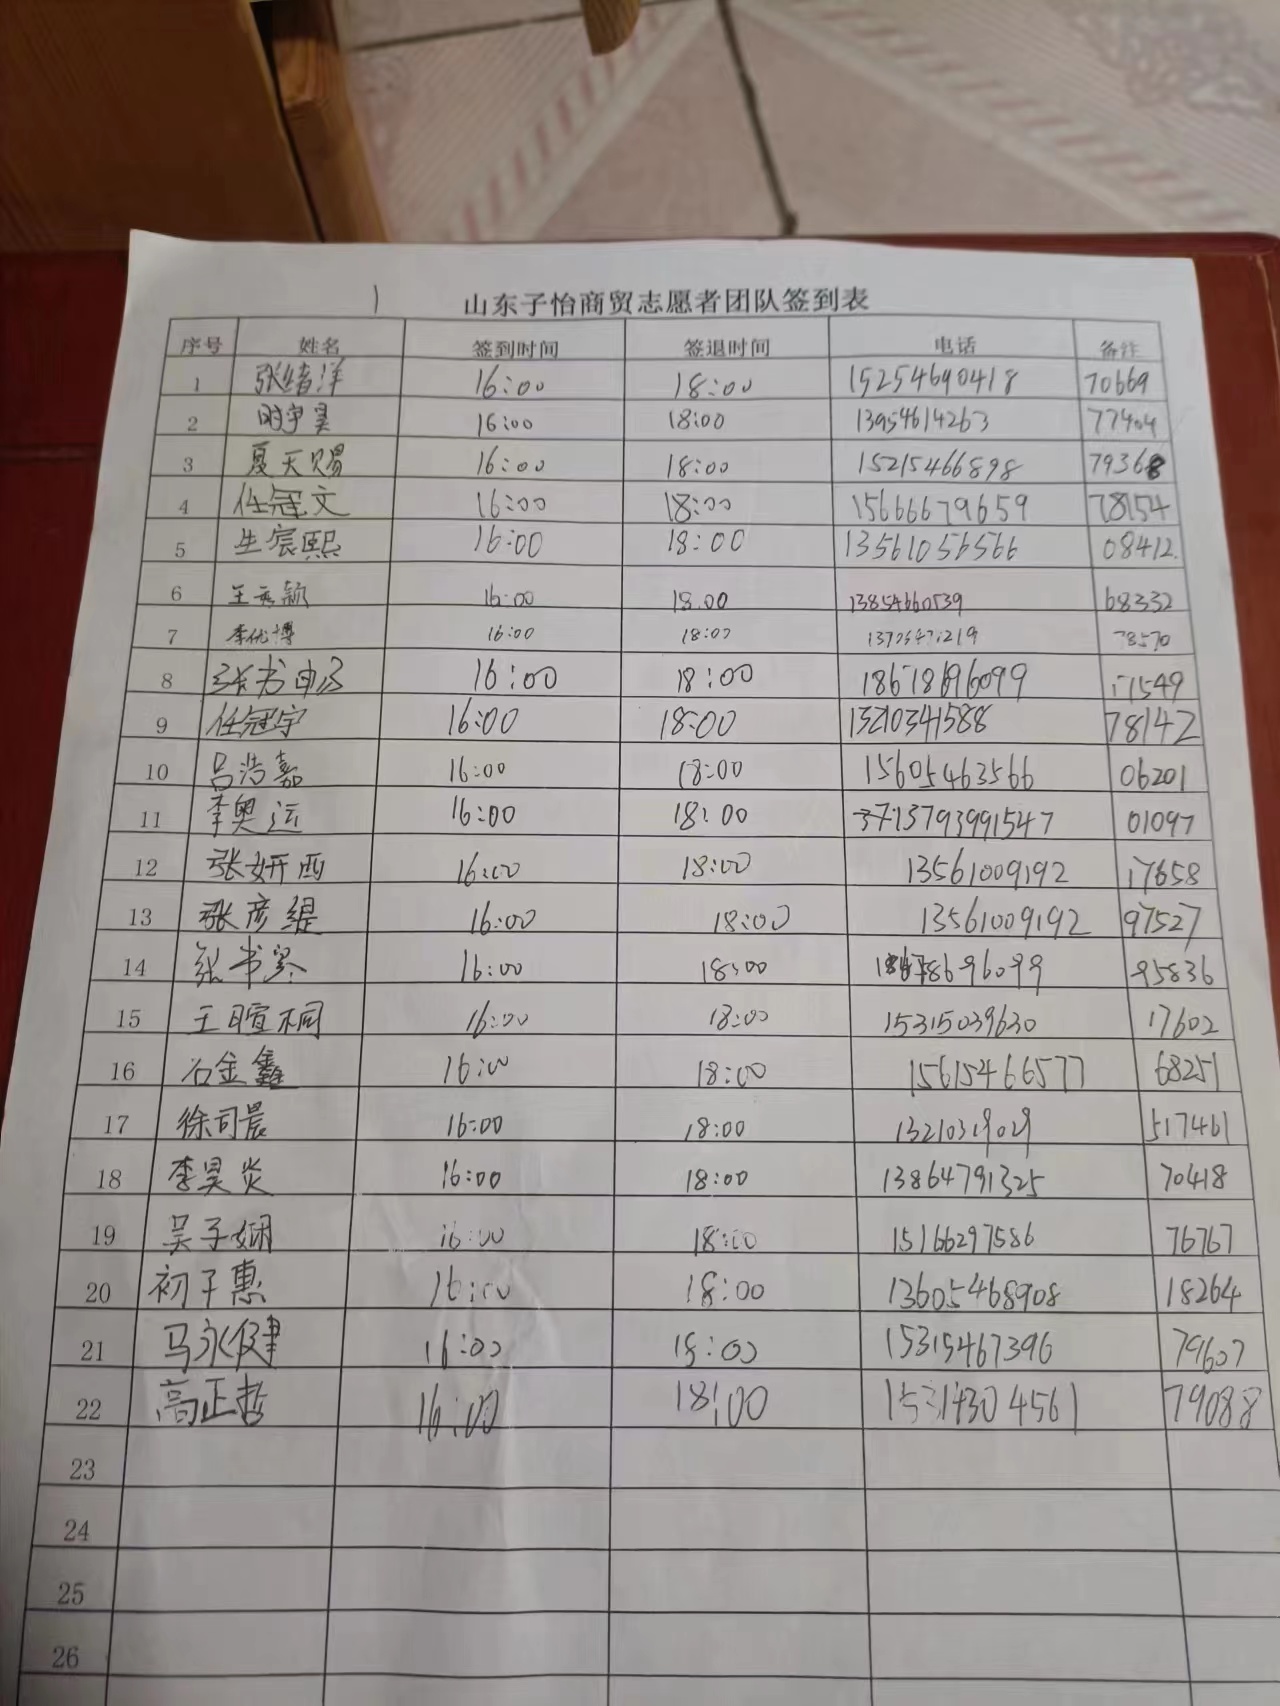 1 山东子怡商贸志愿者团队签到表
序号 姓名 签到时间 签退时间 电话 备注
1 张绪洋 16:00 18:00 15254690418 70669
2 时宇昊 16:00 18:00 13954614263 77404
3 夏天赐 16:00 18:00 15215466898 79368
4 任冠文 16:00 18:00 15666679659 78154
5 生宸熙 16:00 18:00 13561056566 08412
6 16:00 18:00 13854660539 68332
7 李优博 16:00 18:00 78570
8 16:00 18:00 18678696099
9 任冠宇 16:00 18:00 13210341588 78142
10 吕浩嘉 16:00 18:00 15605463566 06201
11 李奥运 16:00 18:00 01097
12 张妍西 16:00 18:00 13561009192 17658
13 张彦缇 16:00 18:00 13561009192 97527
14 16:00 18:00 95836
15 王暄桐 16:00 18:00 15315039630 17602
16 石金鑫 16:00 18:00 15615466577 68251
17 徐司晨 16:00 18:00 13210319029 517461
18 李昊炎 16:00 18:00 13864791325 70418
19 吴子娴 16:00 18:00 15166297586 76767
20 初子惠 16:00 18:00 13605468908 18264
21 马永健 16:00 18:00 15315467396 79607
22 高正哲 16:00 18:00 15314304561 79088
23
24
25
26